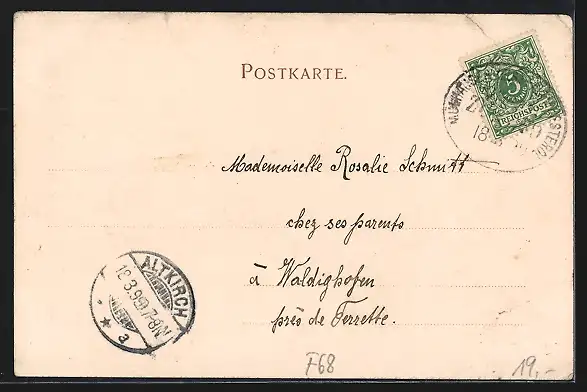 POSTKARTE.
5
REICHSPOST
18
Mademoiselle Rosalie Schmitt
chez ses parents
à Waldighofen
près de Ferrette.
ALTKIRCH
18.3.99. 7-8N
a
F68
19,-